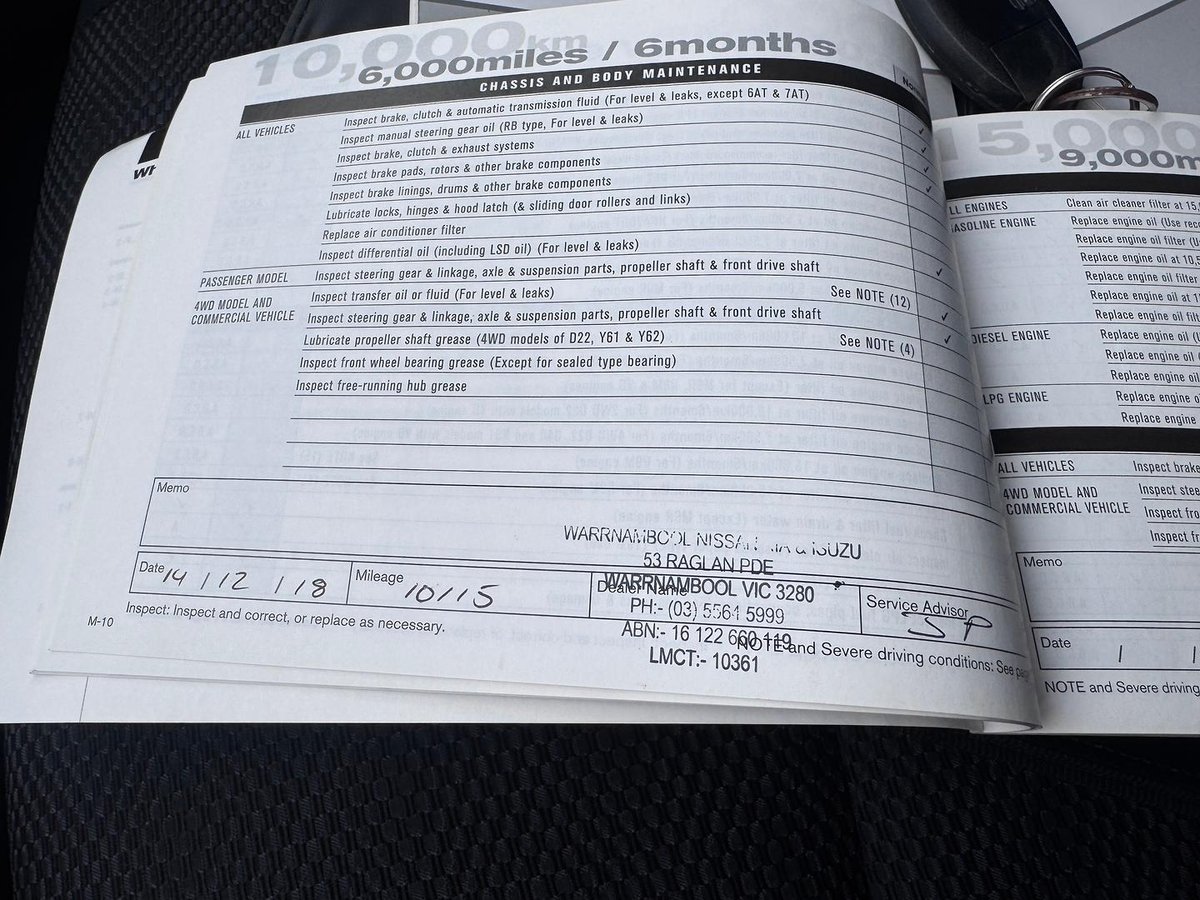 10,000km
6,000miles / 6months
CHASSIS AND BODY MAINTENANCE
ALL VEHICLES
Inspect brake, clutch & automatic transmission fluid (For level & leaks, except 6AT & 7AT)
Inspect manual steering gear oil (RB type, For level & leaks)
Inspect brake, clutch & exhaust systems
Inspect brake pads, rotors & other brake components
Inspect brake linings, drums & other brake components
Lubricate locks, hinges & hood latch (& sliding door rollers and links)
Replace air conditioner filter
Inspect differential oil (including LSD oil) (For level & leaks)
PASSENGER MODEL Inspect steering gear & linkage, axle & suspension parts, propeller shaft & front drive shaft
4WD MODEL AND COMMERCIAL VEHICLE
Inspect transfer oil or fluid (For level & leaks) See NOTE (12)
Inspect steering gear & linkage, axle & suspension parts, propeller shaft & front drive shaft
Lubricate propeller shaft grease (4WD models of D22, Y61 & Y62) See NOTE (4)
Inspect front wheel bearing grease (Except for sealed type bearing)
Inspect free-running hub grease
Memo
WARRNAMBOOL NISSAN & ISUZU
53 RAGLAN PDE
WARRNAMBOOL VIC 3280
PH:- (03) 5564 5999
ABN:- 16 122 660 119
LMCT:- 10361
Date 14 / 12 / 18
Mileage 10115
Dealer Name
Service Advisor
SP
M-10
Inspect: Inspect and correct, or replace as necessary.
NOTE and Severe driving conditions: See
15,000
9,000m
ENGINES
Clean air cleaner filter at
GASOLINE ENGINE
Replace engine oil (Use
Replace engine oil filter
Replace engine oil at
Replace engine oil filter
Replace engine oil at
Replace engine oil
DIESEL ENGINE
Replace engine oil
Replace engine oil
Replace engine oil
LPG ENGINE
Replace engine
Replace engine
ALL VEHICLES
Inspect brake
4WD MODEL AND COMMERCIAL VEHICLE
Inspect
Inspect
Inspect
Memo
Date / /
NOTE and Severe driving